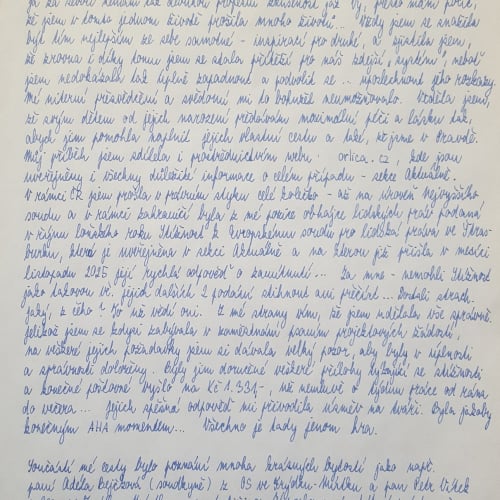 já za sebou nemám tak
jsem v tomto jednom životě prožila mnoho životů"... Vždy jsem se snažila
být tím nejlepším ze sebe samotné - inspirací pro druhé, a zjistila jsem,
že zrovna i díky tomu jsem se stala přítěží pro náš zdejší "systém", neboť
jsem nedokázala tak úplně zapadnout a podvolit se ... uposlechnout jeho rozkazy.
Mé niterní přesvědčení a svědomí mi to bohužel neumožňovalo. Věděla jsem,
že svým dětem od jejich narození předávám maximální péči a lásku tak,
abych jim pomohla naplnit jejich vlastní cestu a také, že jsme v Pravdě.
Můj příběh jsem sdílela i prostřednictvím webu: orlica.cz, kde jsou
uveřejněny i všechny důležité informace o celém případu - sekce Aktuálně.
V rámci ČR jsem prošla v právním styku celé kolečko - až na úroveň Nejvyššího
soudu a v rámci zahraničí byla z mé pozice obhájce lidských práv podaná
v říjnu loňského roku Stížnost k Evropskému soudu pro lidská práva ve Štras-
burku, která je uveřejněna v sekci Aktuálně a na kterou již přišla v měsíci
listopadu 2025 její rychlá odpověď o zamítnutí... Za mne - nemohli Stížnost
jako takovou vč. jejích dalších 2 podání stihnout ani přečíst... Dostali strach.
Jaký, z čeho? To už vědí oni. Z mé strany vím, že jsem udělala vše správně.
Jelikož jsem se kdysi zabývala v zaměstnání psaním projektových žádostí,
na veškeré jejich požadavky jsem si dávala velký pozor, aby byly v úplnosti
a správnosti doloženy. Byly jim doručené veškeré přílohy týkající se stížnosti
a konečné poštovné vyšlo na Kč 1.331,-, už nemluvě o týdnu práce od rána
do večera... Jejich spěšná odpověď mi přivodila úsměv na tváři. Byla jakoby
konečným AHA momentem... Všechno je tady jenom hra.
Součástí mé cesty bylo poznání mnoha krásných bytostí jako např.
paní Adéla (soudkyně) z OS ve Frýdku-Místku a pan Petr Vítek